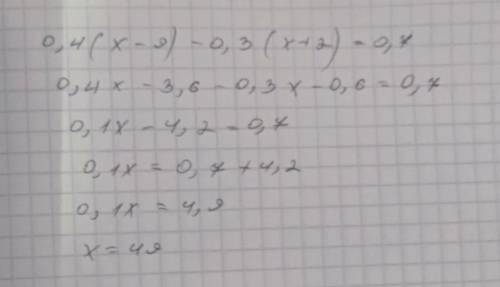 0,4(x-9)-0,3(x+2)=0,7
0,4x-3,6-0,3x-0,6=0,7
0,1x-4,2=0,7
0,1x=0,7+4,2
0,1x=4,9
x=49